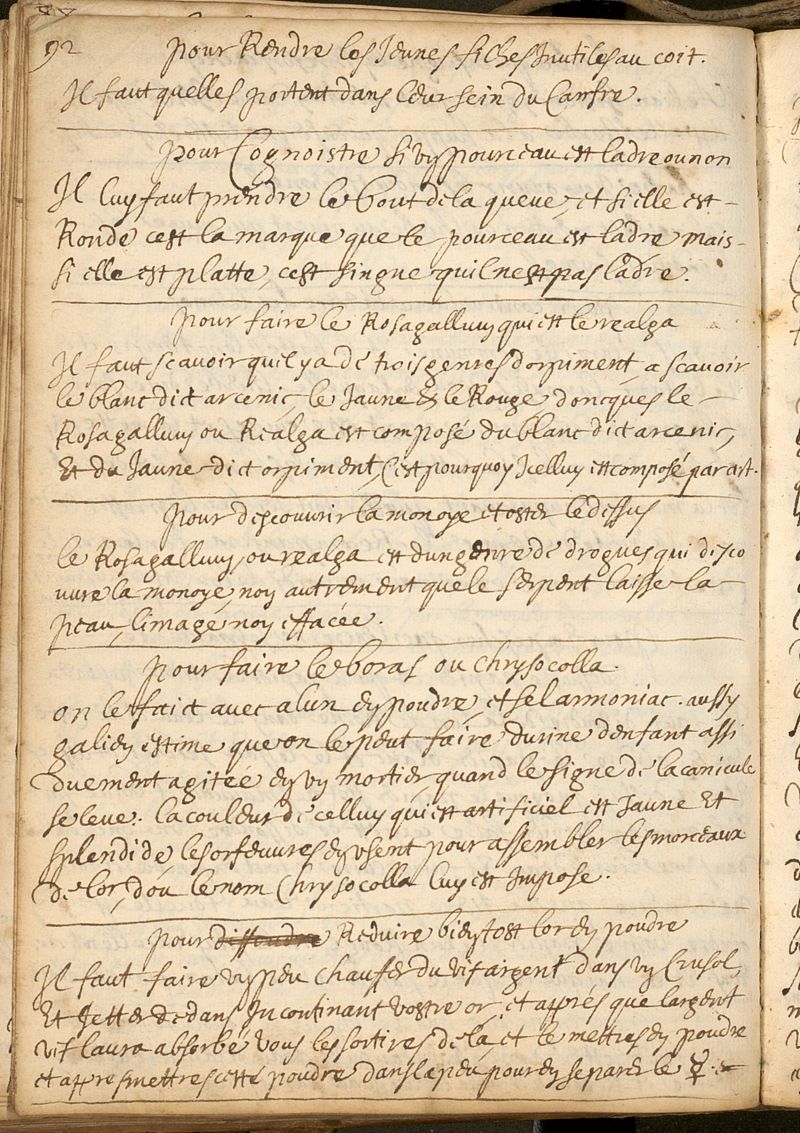 92
pour Rendre les Jeunes filhes Inutiles au coit.
Il faut quelles portent dans leur sein du Canfre.
pour Cognoistre si vn pourceau est ladre ou non
Il luy faut prendre le bout de la queue, et si elle est
Ronde cest la marque que le pourceau est ladre mais
si elle est platte, cest singne quil nest pas ladre.
pour faire le Rosagallum qui est le realga
Il faut scauoir quil y a de trois genres dorpiment, a scauoir
le blanc dict arcenic, le Jaune & le Rouge doncques le
Rosagallum ou Realga est composé du blanc dict arcenic,
Et du Jaune dict orpiment, Cest pourquoy Jcelluy est composé par art.
Pour descouurir la monoye et oster le dessus
le Rosagallum, ou realga est dun genre de drogues qui desco
uure la monoye, non autrement que le serpent laisse la
peau, limage non effacée.
pour faire le boras ou chrysocolla.
on le faict auec alun en poudre, et sel armoniac. aussy
galien estime que on le peut faire durine denfant assi
duement agitée en vn mortier, quand le signe de la canicule
se leue. la couleur de celluy qui est artificiel est Jaune Et
splendide, les orfeuures en vsent pour assembler les morceaux
de lor, dou le nom Chrysocolla luy est Impose.
pour dissoudre Reduire bien tost lor en poudre
Il faut faire vn peu chauffer du vif argent dans vn Crusol,
Et Jetter dedans Incontinant vostre or, et apprés que largent
vif laura absorbé vous les sortires de la, et le mettres en poudre
et appres mettres cette poudre dans le peu pour en separer le ☿. et